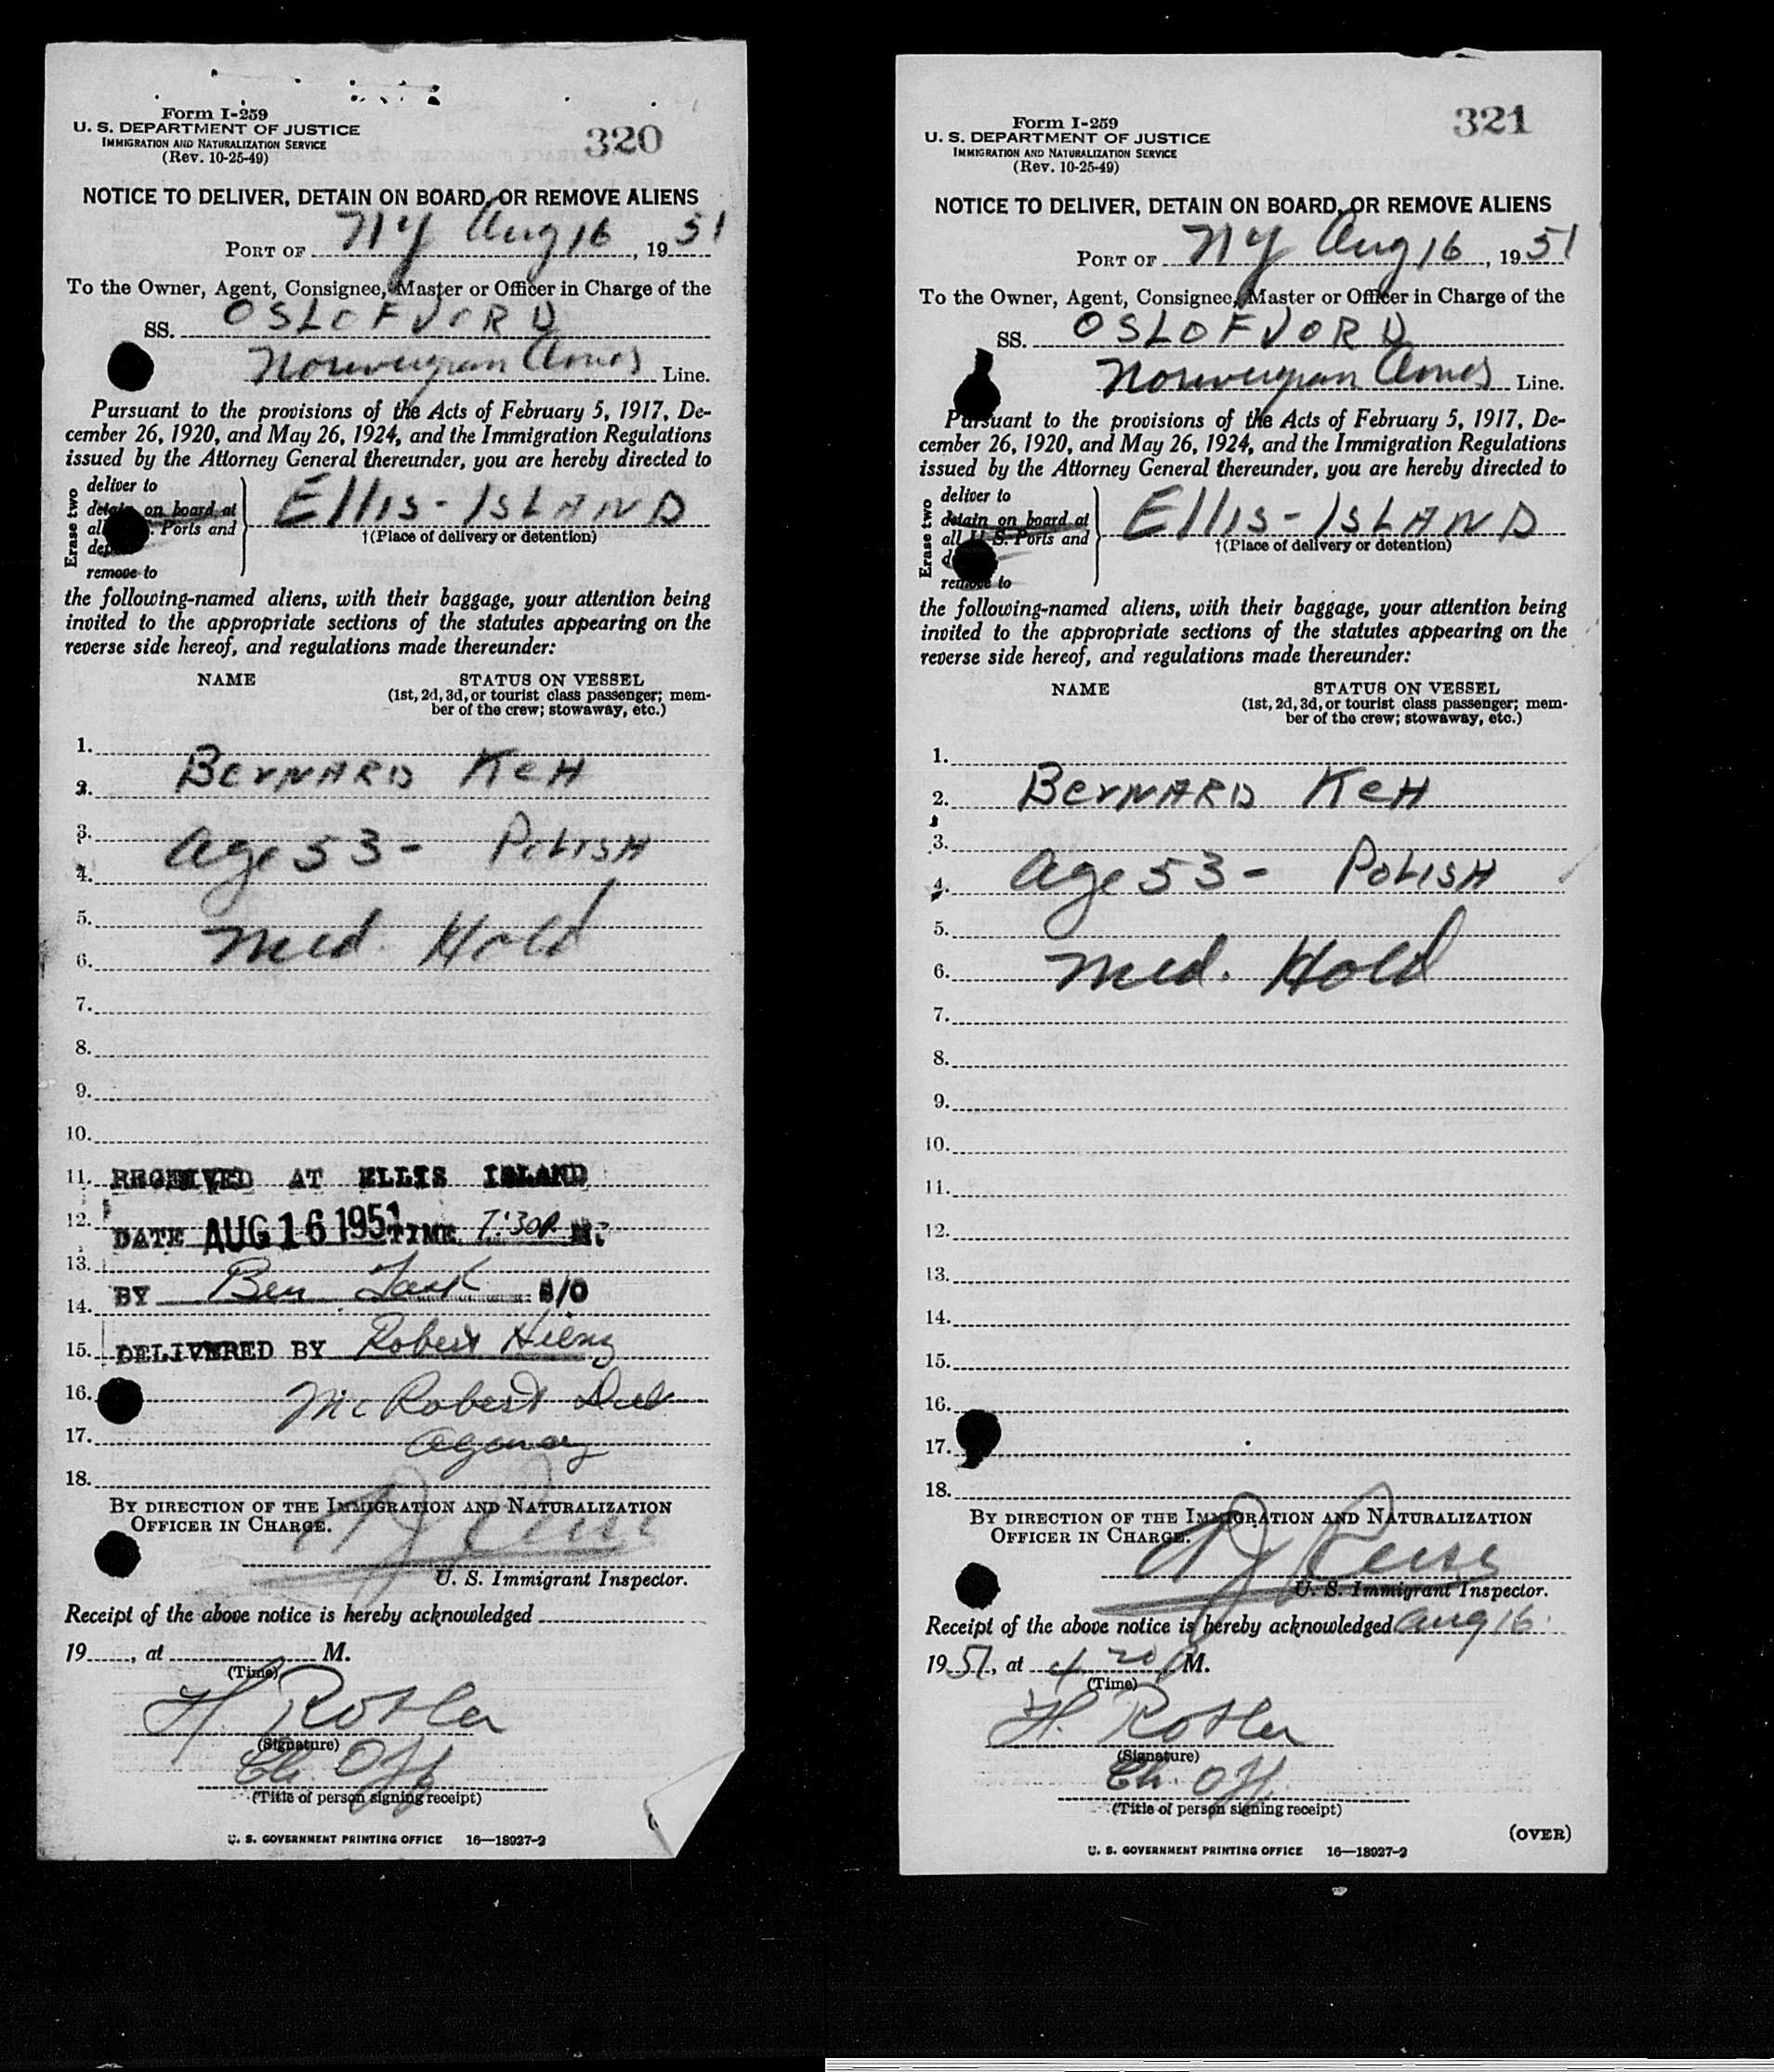 Form I-259
U. S. DEPARTMENT OF JUSTICE
IMMIGRATION AND NATURALIZATION SERVICE
(Rev. 10-25-49)
320
NOTICE TO DELIVER, DETAIN ON BOARD, OR REMOVE ALIENS
PORT OF NY Aug 16, 1951
To the Owner, Agent, Consignee, Master or Officer in Charge of the
SS. OSLOFJORD
Norwegian Line.
Pursuant to the provisions of the Acts of February 5, 1917, De-
cember 26, 1920, and May 26, 1924, and the Immigration Regulations
issued by the Attorney General thereunder, you are hereby directed to
Erase two
deliver to
detain on board at
all Ports and
remove to
Ellis-ISLAND
†(Place of delivery or detention)
the following-named aliens, with their baggage, your attention being
invited to the appropriate sections of the statutes appearing on the
reverse side hereof, and regulations made thereunder:
NAME STATUS ON VESSEL
(1st, 2d, 3d, or tourist class passenger; mem-
ber of the crew; stowaway, etc.)
1.
2. BerNARD KeH
3.
4. Age 53 - POLISH
5.
6. Med. Hold
7.
8.
9.
10.
11. RECEIVED AT ELLIS ISLAND
12. DATE AUG 16 1951 TIME 7:30P. M.
13.
14. BY Ben S/O
15. DELIVERED BY Robert
16. Mc Robert
17. Agency
18.
BY DIRECTION OF THE IMMIGRATION AND NATURALIZATION
OFFICER IN CHARGE.
U. S. Immigrant Inspector.
Receipt of the above notice is hereby acknowledged
19, at M.
(Time)
H.
(Signature)
Ch. Off
(Title of person signing receipt)
U. S. GOVERNMENT PRINTING OFFICE 16—18927-2
Form I-259
U. S. DEPARTMENT OF JUSTICE
IMMIGRATION AND NATURALIZATION SERVICE
(Rev. 10-25-49)
321
NOTICE TO DELIVER, DETAIN ON BOARD, OR REMOVE ALIENS
PORT OF NY Aug 16, 1951
To the Owner, Agent, Consignee, Master or Officer in Charge of the
SS. OSLOFJORD
Norwegian Line.
Pursuant to the provisions of the Acts of February 5, 1917, De-
cember 26, 1920, and May 26, 1924, and the Immigration Regulations
issued by the Attorney General thereunder, you are hereby directed to
Erase two
deliver to
detain on board at
all U. S. Ports and
remove to
Ellis-ISLAND
†(Place of delivery or detention)
the following-named aliens, with their baggage, your attention being
invited to the appropriate sections of the statutes appearing on the
reverse side hereof, and regulations made thereunder:
NAME STATUS ON VESSEL
(1st, 2d, 3d, or tourist class passenger; mem-
ber of the crew; stowaway, etc.)
1.
2. BerNARD KeH
3.
4. Age 53 - POLISH
5.
6. Med. Hold
7.
8.
9.
10.
11.
12.
13.
14.
15.
16.
17.
18.
BY DIRECTION OF THE IMMIGRATION AND NATURALIZATION
OFFICER IN CHARGE.
U. S. Immigrant Inspector.
Receipt of the above notice is hereby acknowledged Aug 16
1951, at 4 20 P M.
(Time)
H.
(Signature)
Ch. Off.
(Title of person signing receipt)
(OVER)
U. S. GOVERNMENT PRINTING OFFICE 16—18927-2